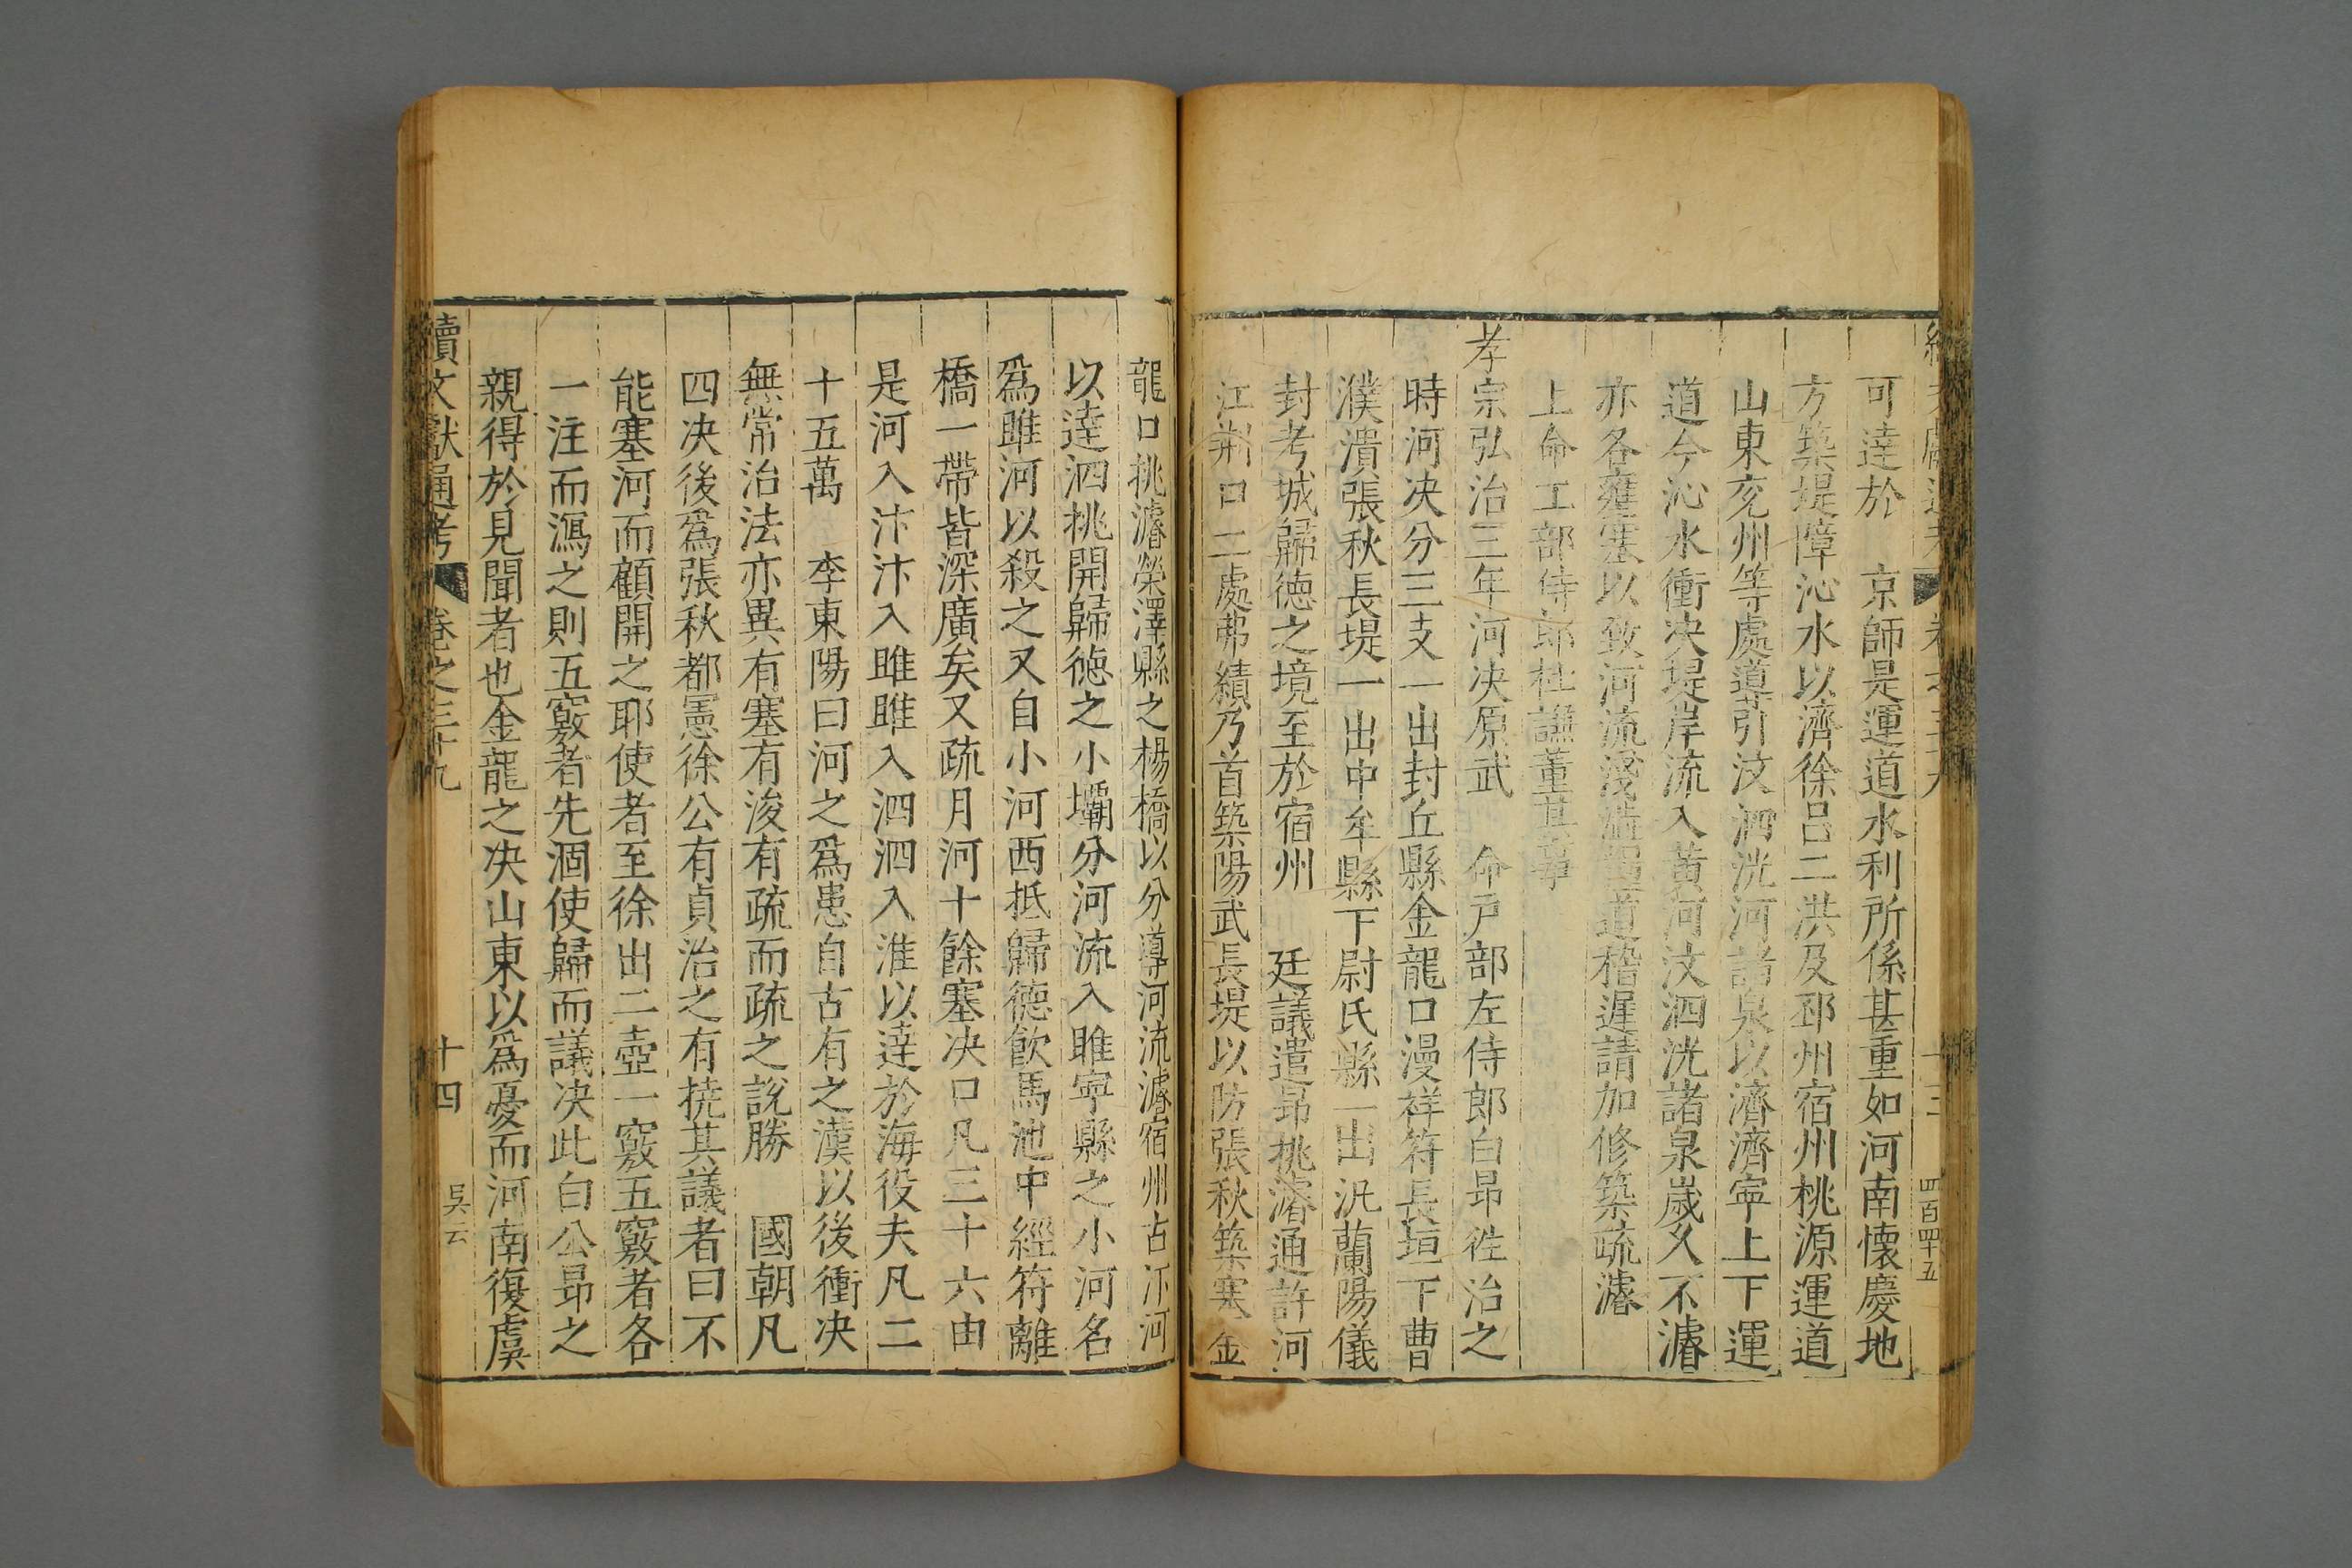 可達於　京師是運道水利所係甚重如河南懷慶地
方築堤障沁水以濟徐呂二洪及邳州宿州桃源運道
山東兖州等處導引汶泗洸河諸泉以濟濟寧上下運
道今沁水衝決堤岸流入黃河汶泗洸諸泉歲久不濬
亦各壅塞以致河流淺澁運道稽遲請加修築疏濬
上命工部侍郎杜謙董其事
孝宗弘治三年河决原武　命戸部左侍郎白昻徃治之
時河决分三支一出封丘縣金龍口漫祥符長垣下曹
濮潰張秋長堤一出中牟縣下尉氏縣一出汎蘭陽儀
封考城歸德之境至於宿州　廷議遣昻挑濬通許河
江荆口二處弗績乃首築陽武長堤以防張秋築塞金
四百四十五
龍口挑濬滎澤縣之楊橋以分導河流濬宿州古汴河
以達泗挑開歸德之小壩分河流入睢寧縣之小河名
爲睢河以殺之又自小河西抵歸德飮馬池中經符離
橋一帶皆深廣矣又疏月河十餘塞决口凡三十六由
是河入汴汴入睢睢入泗泗入淮以達於海役夫凡二
十五萬　李東陽曰河之爲患自古有之漢以後衝决
無常治法亦異有塞有浚有疏而疏之說勝　國朝凡
四决後爲張秋都憲徐公有貞治之有撓其議者曰不
能塞河而顧開之耶使者至徐出二壺一竅五竅者各
一注而瀉之則五竅者先涸使歸而議决此白公昻之
親得於見聞者也金龍之决山東以爲憂而河南復虞
續文獻通考　卷之三十九　十四　吳云